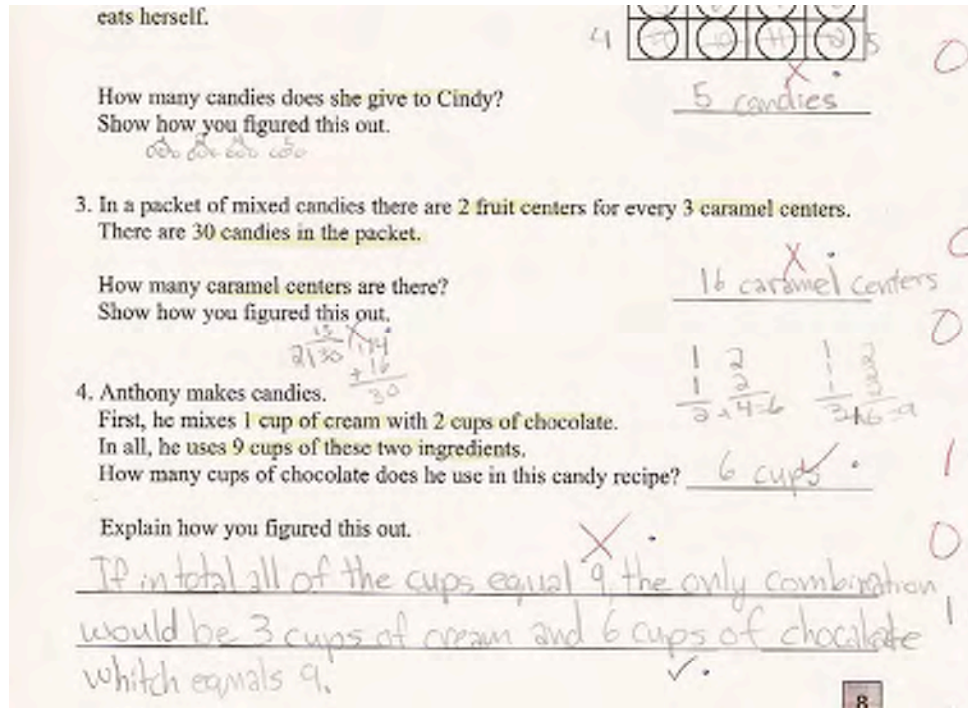 eats herself.
4
5
How many candies does she give to Cindy?
5 candies
Show how you figured this out.
3. In a packet of mixed candies there are 2 fruit centers for every 3 caramel centers.
There are 30 candies in the packet.
How many caramel centers are there?
16 caramel centers
Show how you figured this out.
15
2 30 14
+ 16
30
1 2 1 2
1 2 1 2
1 2
2 + 4 = 6 3 + 6 = 9
4. Anthony makes candies.
First, he mixes 1 cup of cream with 2 cups of chocolate.
In all, he uses 9 cups of these two ingredients.
How many cups of chocolate does he use in this candy recipe?
6 cups
Explain how you figured this out.
If in total all of the cups equal 9, the only combination
would be 3 cups of cream and 6 cups of chocalate
whitch eqmals 9.
0
0
0
1
0
1
8